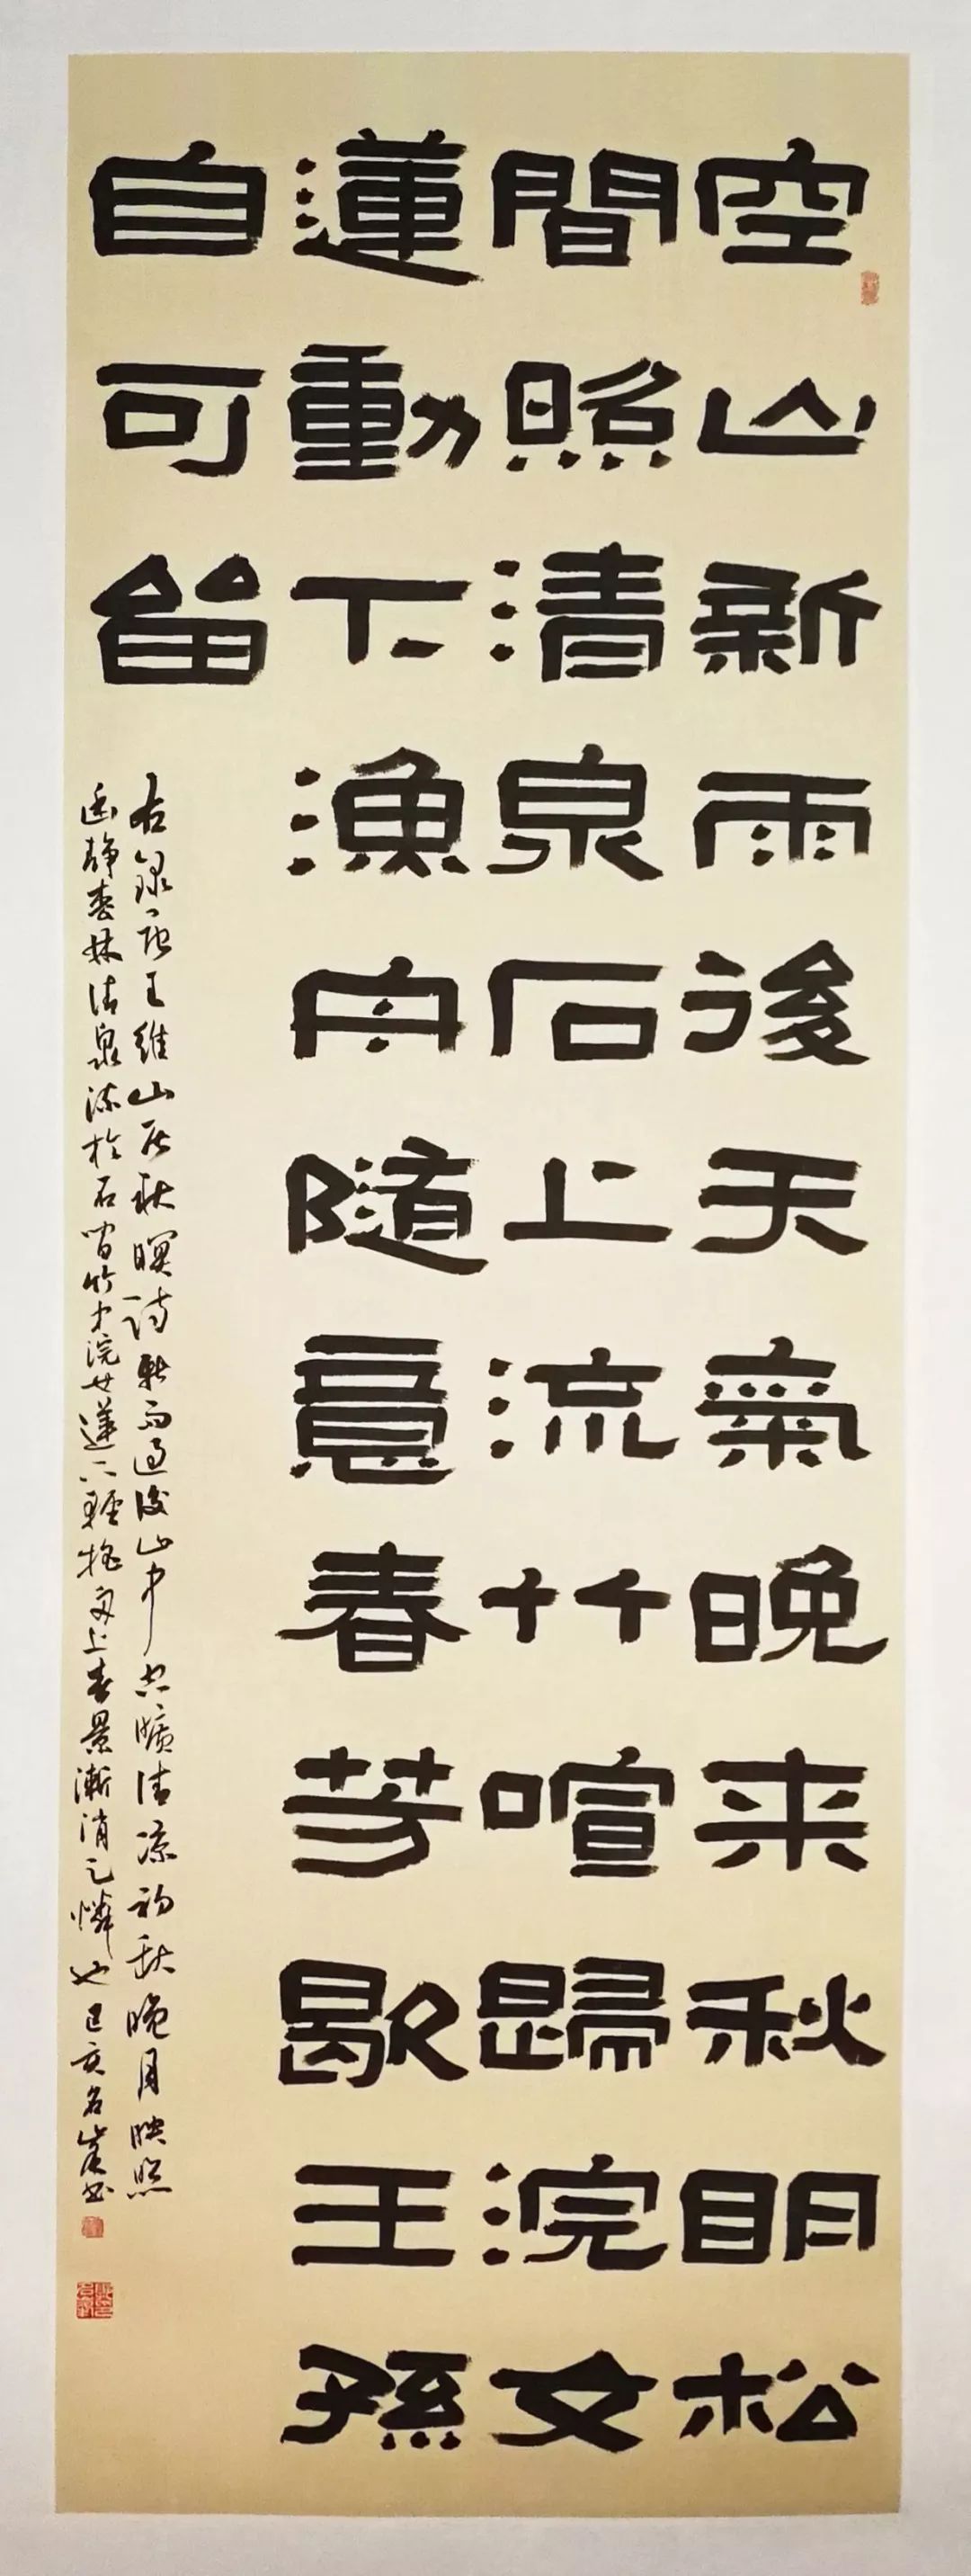 空山新雨後天氣晚来秋明松
間照清泉石上流竹喧歸浣女
蓮動下漁舟隨意春芳歇王孫
自可留
右録唐王維山居秋暝詩新雨過後山中空曠清涼初秋晚月映照
幽静松林清泉流於石間竹中浣女蓮下輕搖舟上春景漸消之憐也己亥名崖书